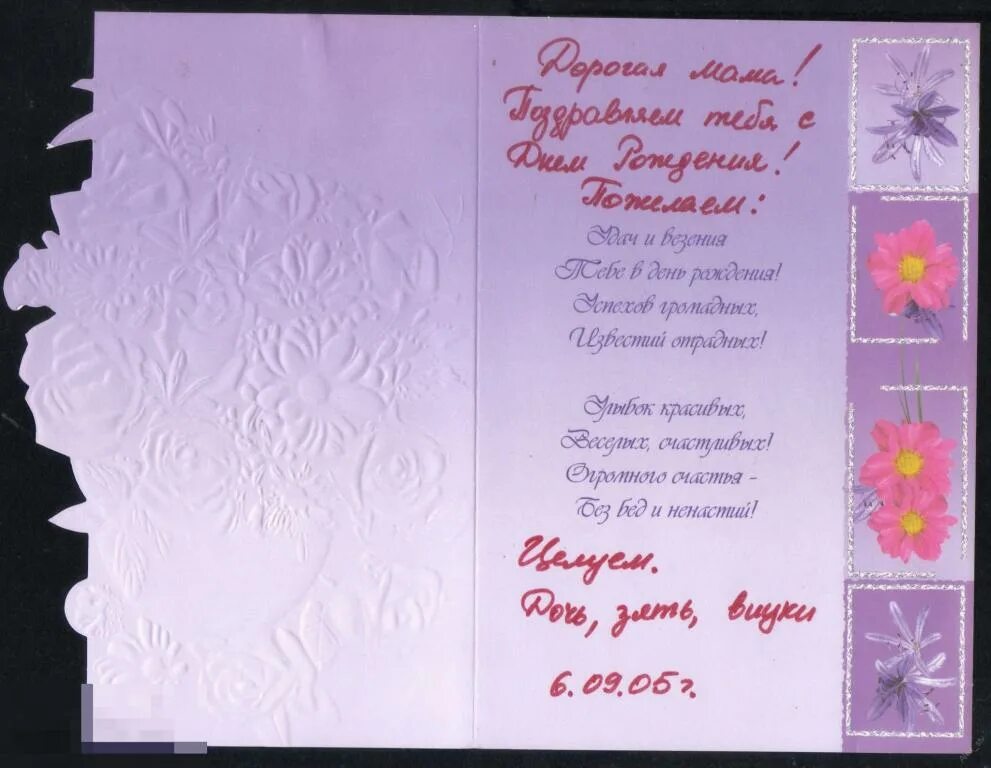 Дорогая мама!
Поздравляем тебя с
Днем Рождения!
Пожелаем:
Удач и везения
Тебе в день рождения!
Успехов громадных,
Известий отрадных!
Улыбок красивых,
Веселых, счастливых!
Огромного счастья -
Без бед и ненастий!
Целуем.
Дочь, зять, внуки
6.09.05г.